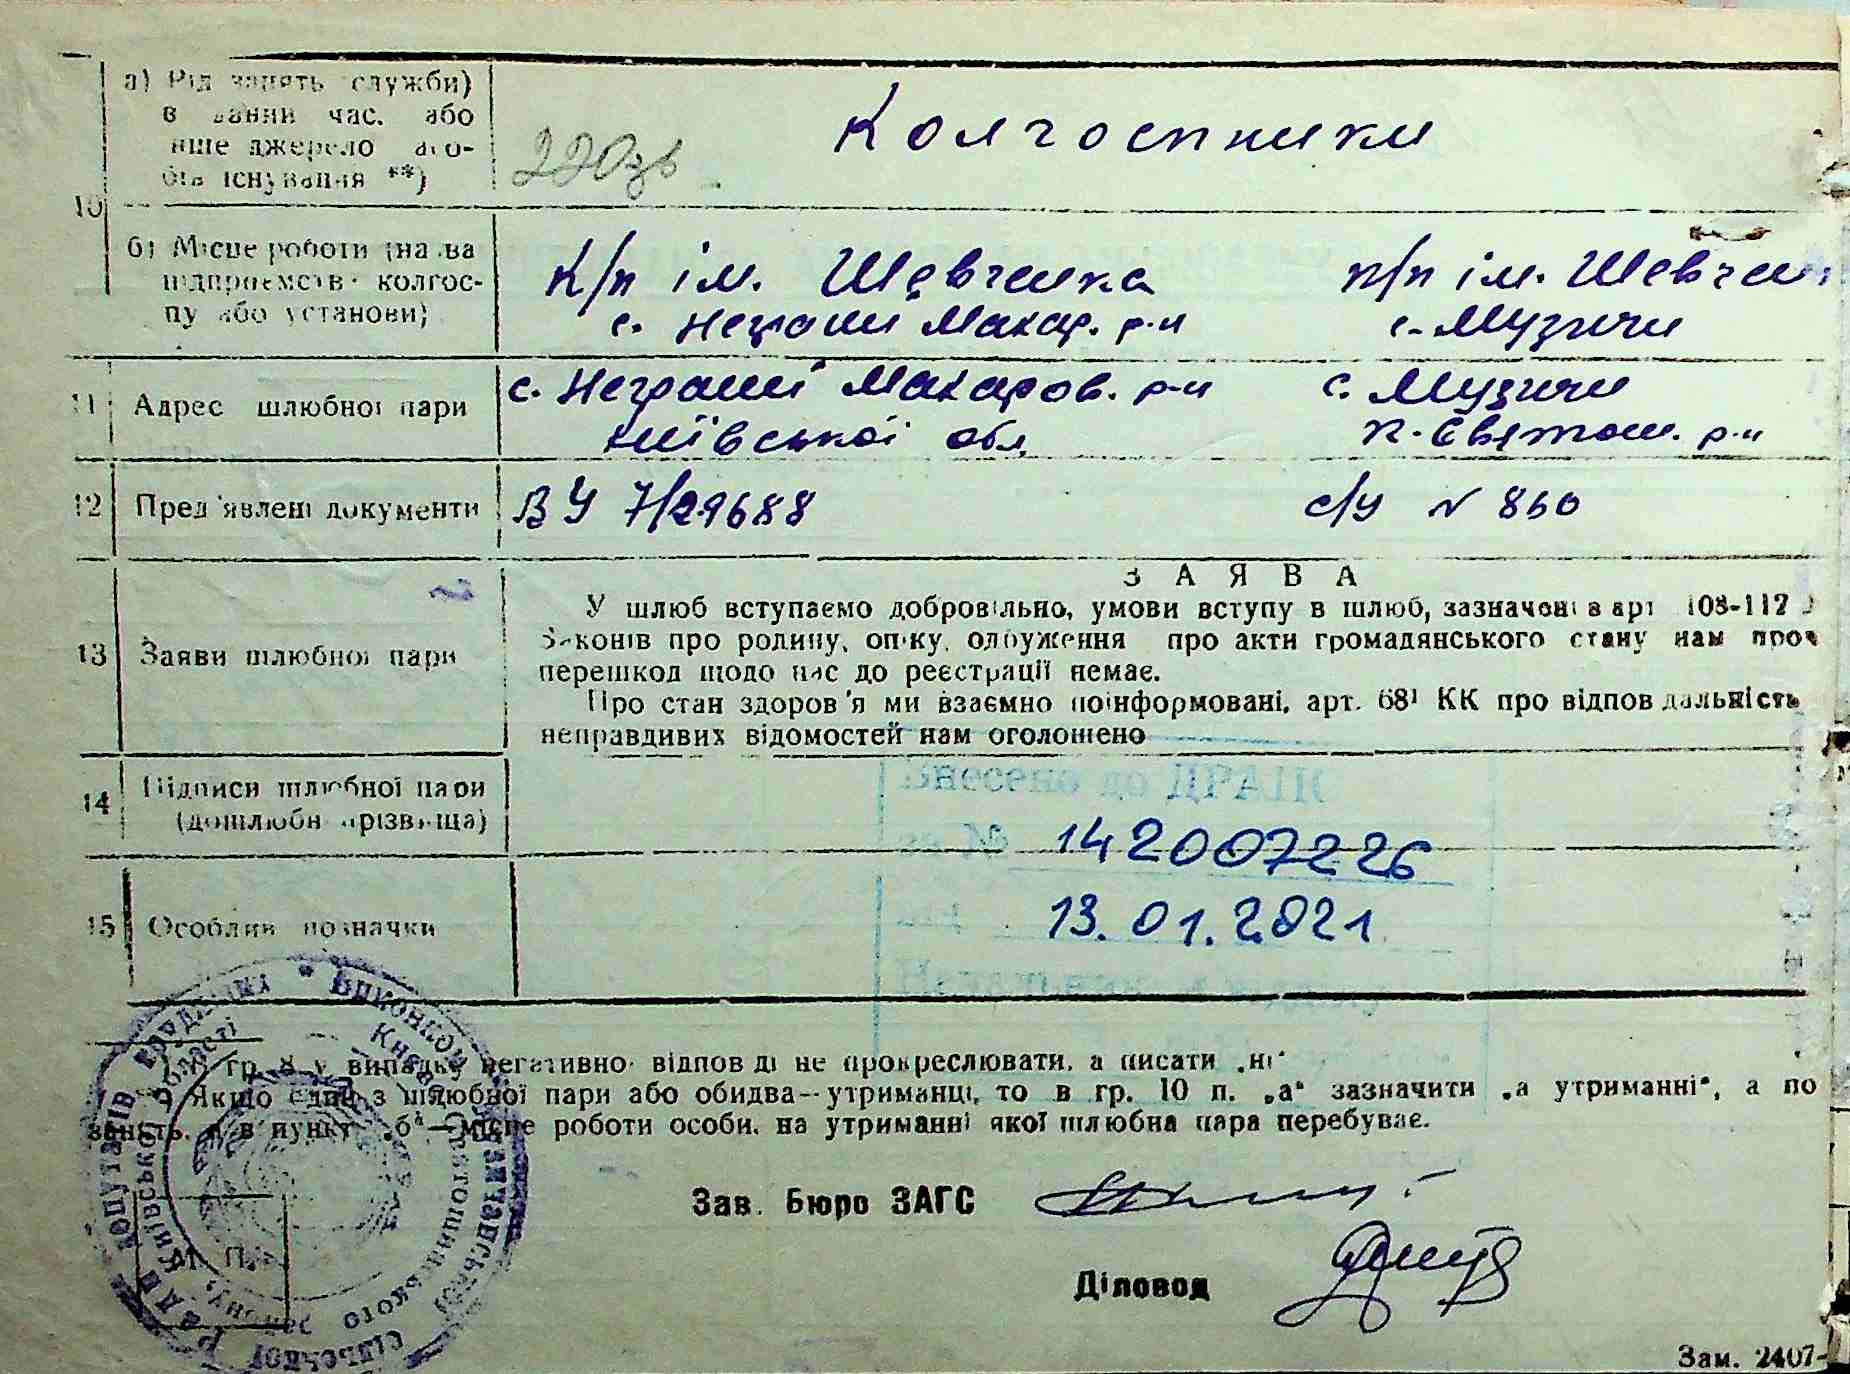 а) Рід занять (служби)
в даний час, або
інше джерело засо-
бів існування **)
Колгоспники
220зв
10
б) Місце роботи (назва
підприємств, колгос-
пу або установи)
К/п ім. Шевченка
с. Неграши Макар. р-н
к/п ім. Шевчен
с. Музичи
11
Адрес шлюбної пари
с. Неграші Макаров. р-н
Київської обл.
с. Музичи
К. Святош. р-н
12
Пред'явлені документи
ВУ 7/29688
с/у N 860
13
Заяви шлюбної пари
ЗАЯВА
У шлюб вступаємо добровільно, умови вступу в шлюб, зазначені в арт 108-112
Законів про родину, опіку, одруження про акти громадянського стану нам проч
перешкод щодо нас до реєстрації немає.
Про стан здоров'я ми взаємно поінформовані, арт. 68¹ КК про відповідальність
неправдивих відомостей нам оголошено
14
Підписи шлюбної пари
(дошлюбні прізвища)
142007226
15
Особливі позначки
13.01.2021
гр. 8 у випадку негативної відповіді не прокреслювати, а писати „ні"
Якщо один з шлюбної пари або обидва—утриманці, то в гр. 10 п. „а" зазначити „а утриманні", а по
занять, а в пункті „б"—місце роботи особи, на утриманні якої шлюбна пара перебуває.
Зав. Бюро ЗАГС
М. П.
Діловод
Зам. 2407-